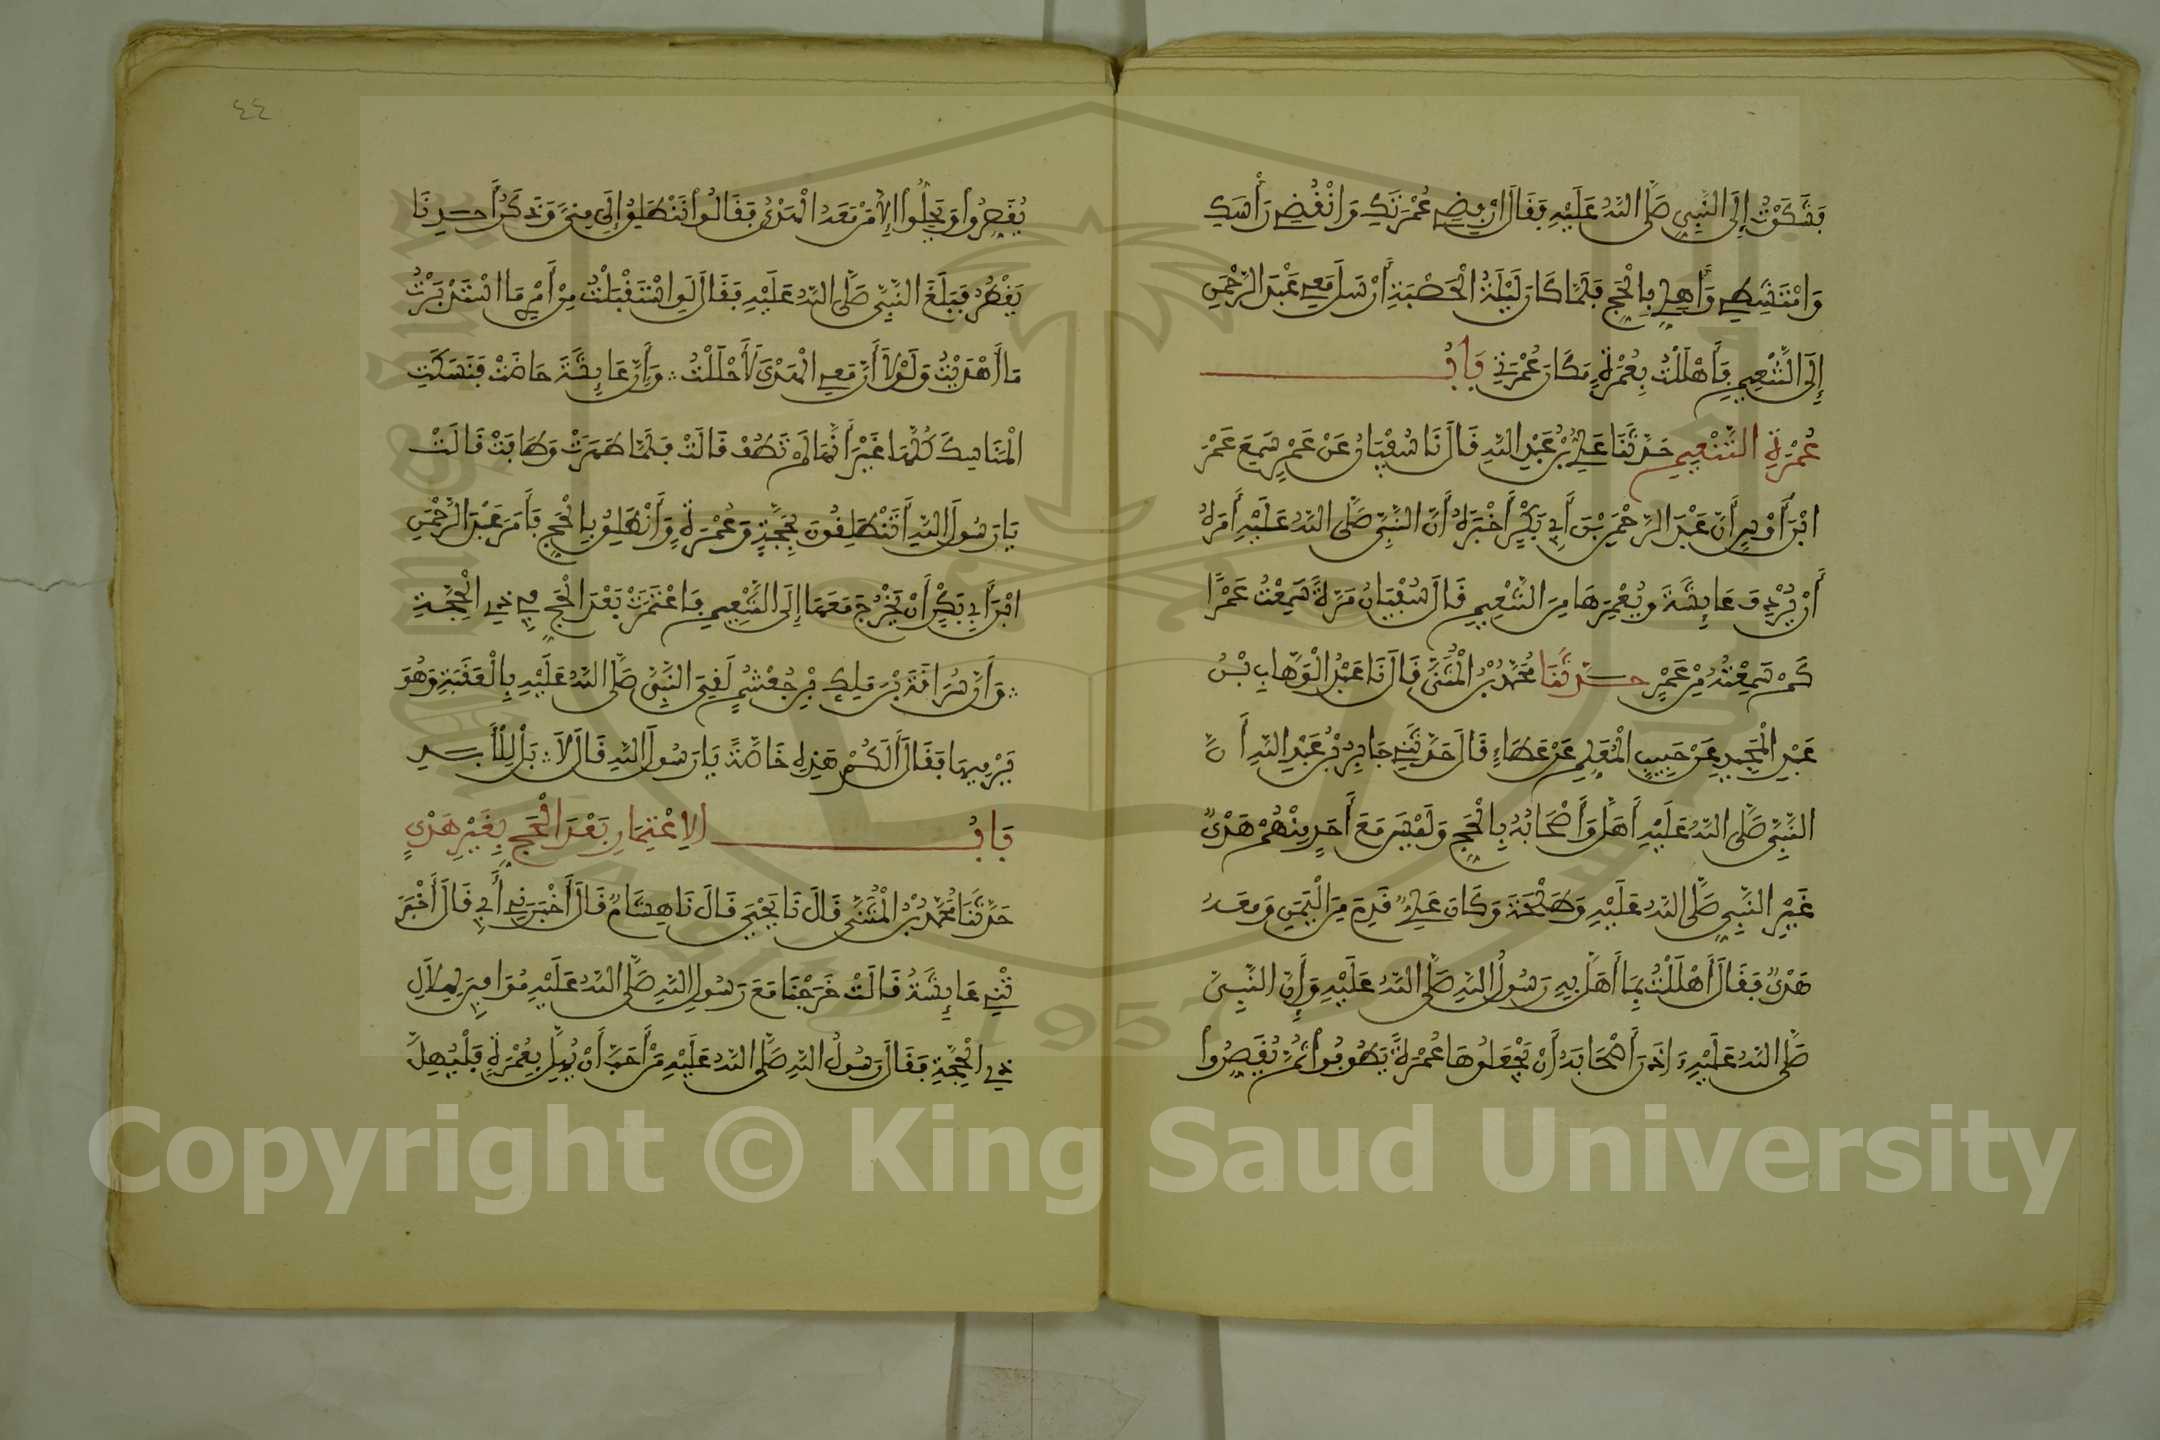 فَشَكَوْتُ إِلَى النَّبِيِّ صَلَّى اللَّهُ عَلَيْهِ فَقَالَ ارْفِضِي عُمْرَتَكِ وَانْقُضِي رَأْسَكِ
وَامْتَشِطِي وَأَهِلِّي بِالْحَجِّ فَلَمَّا كَانَ لَيْلَةُ الْحَصْبَةِ أَرْسَلَ مَعِي عَبْدَ الرَّحْمَنِ
إِلَى التَّنْعِيمِ فَأَهْلَلْتُ بِعُمْرَةٍ مَكَانَ عُمْرَتِي بَابُ
عُمْرَةِ التَّنْعِيمِ حَدَّثَنَا عَلِيُّ بْنُ عَبْدِ اللَّهِ قَالَ نَا سُفْيَانُ عَنْ عَمْرٍو سَمِعَ عَمْرَ
ابْنَ أَوْسٍ أَنَّ عَبْدَ الرَّحْمَنِ بْنَ أَبِي بَكْرٍ أَخْبَرَهُ أَنَّ النَّبِيَّ صَلَّى اللَّهُ عَلَيْهِ أَمَرَهُ
أَنْ يُرْدِفَ عَائِشَةَ وَيُعْمِرَهَا مِنَ التَّنْعِيمِ قَالَ سُفْيَانُ مَرَّةً سَمِعْتُ عَمْرًا
كَمْ سَمِعْتُهُ مِنْ عَمْرٍو حَدَّثَنَا مُحَمَّدُ بْنُ الْمُثَنَّى قَالَ نَا عَبْدُ الْوَهَّابِ بْنُ
عَبْدِ الْمَجِيدِ عَنْ حَبِيبٍ الْمُعَلِّمِ عَنْ عَطَاءٍ قَالَ حَدَّثَنِي جَابِرُ بْنُ عَبْدِ اللَّهِ أَنَّ
النَّبِيَّ صَلَّى اللَّهُ عَلَيْهِ أَهَلَّ وَأَصْحَابُهُ بِالْحَجِّ وَلَيْسَ مَعَ أَحَدٍ مِنْهُمْ هَدْيٌ
غَيْرِ النَّبِيِّ صَلَّى اللَّهُ عَلَيْهِ وَطَلْحَةَ وَكَانَ عَلِيٌّ قَدِمَ مِنَ الْيَمَنِ وَمَعَهُ
هَدْيٌ فَقَالَ أَهْلَلْتُ بِمَا أَهَلَّ بِهِ رَسُولُ اللَّهِ صَلَّى اللَّهُ عَلَيْهِ وَإِنَّ النَّبِيَّ
صَلَّى اللَّهُ عَلَيْهِ أَذِنَ أَصْحَابَهُ أَنْ يَجْعَلُوهَا عُمْرَةً يَطُوفُوا ثُمَّ يُقَصِّرُوا
٤٤
يُقَصِّرُوا وَيَحِلُّوا إِلَّا مَنْ مَعَهُ الْهَدْيُ فَقَالُوا نَنْطَلِقُ إِلَى مِنًى وَذَكَرُ أَحَدِنَا
يَقْطُرُ فَبَلَغَ النَّبِيَّ صَلَّى اللَّهُ عَلَيْهِ فَقَالَ لَوِ اسْتَقْبَلْتُ مِنْ أَمْرِي مَا اسْتَدْبَرْتُ
مَا أَهْدَيْتُ وَلَوْلَا أَنَّ مَعِي الْهَدْيَ لَأَحْلَلْتُ وَأَنَّ عَائِشَةَ حَاضَتْ فَنَسَكَتِ
الْمَنَاسِكَ كُلَّهَا غَيْرَ أَنَّهَا لَمْ تَطُفْ قَالَتْ فَلَمَّا طَهَرَتْ وَطَافَتْ قَالَتْ
يَا رَسُولَ اللَّهِ أَتَنْطَلِقُونَ بِحَجَّةٍ وَعُمْرَةٍ وَأَنْطَلِقُ بِالْحَجِّ فَأَمَرَ عَبْدَ الرَّحْمَنِ
ابْنَ أَبِي بَكْرٍ أَنْ يَخْرُجَ مَعَهَا إِلَى التَّنْعِيمِ فَاعْتَمَرَتْ بَعْدَ الْحَجِّ فِي ذِي الْحِجَّةِ
وَأَنَّ سُرَاقَةَ بْنَ مَلِكِ بْنِ جُعْشُمٍ لَقِيَ النَّبِيَّ صَلَّى اللَّهُ عَلَيْهِ بِالْعَقَبَةِ وَهُوَ
يَرْمِيهَا فَقَالَ أَلَكُمْ هَذِهِ خَاصَّةً يَا رَسُولَ اللَّهِ قَالَ لَا بَلْ لِلْأَبَدِ
بَابُ الِاعْتِمَارِ بَعْدَ الْحَجِّ بِغَيْرِ هَدْيٍ
حَدَّثَنَا مُحَمَّدُ بْنُ الْمُثَنَّى قَالَ نَا يَحْيَى قَالَ نَا هِشَامٌ قَالَ أَخْبَرَنِي أَبِي قَالَ أَخْبَرَ
تْنِي عَائِشَةُ قَالَتْ خَرَجْنَا مَعَ رَسُولِ اللَّهِ صَلَّى اللَّهُ عَلَيْهِ مُوَافِينَ لِهِلَالِ
ذِي الْحِجَّةِ فَقَالَ رَسُولُ اللَّهِ صَلَّى اللَّهُ عَلَيْهِ مَنْ أَحَبَّ أَنْ يُهِلَّ بِعُمْرَةٍ فَلْيُهِلَّ
Copyright © King Saud University
1957